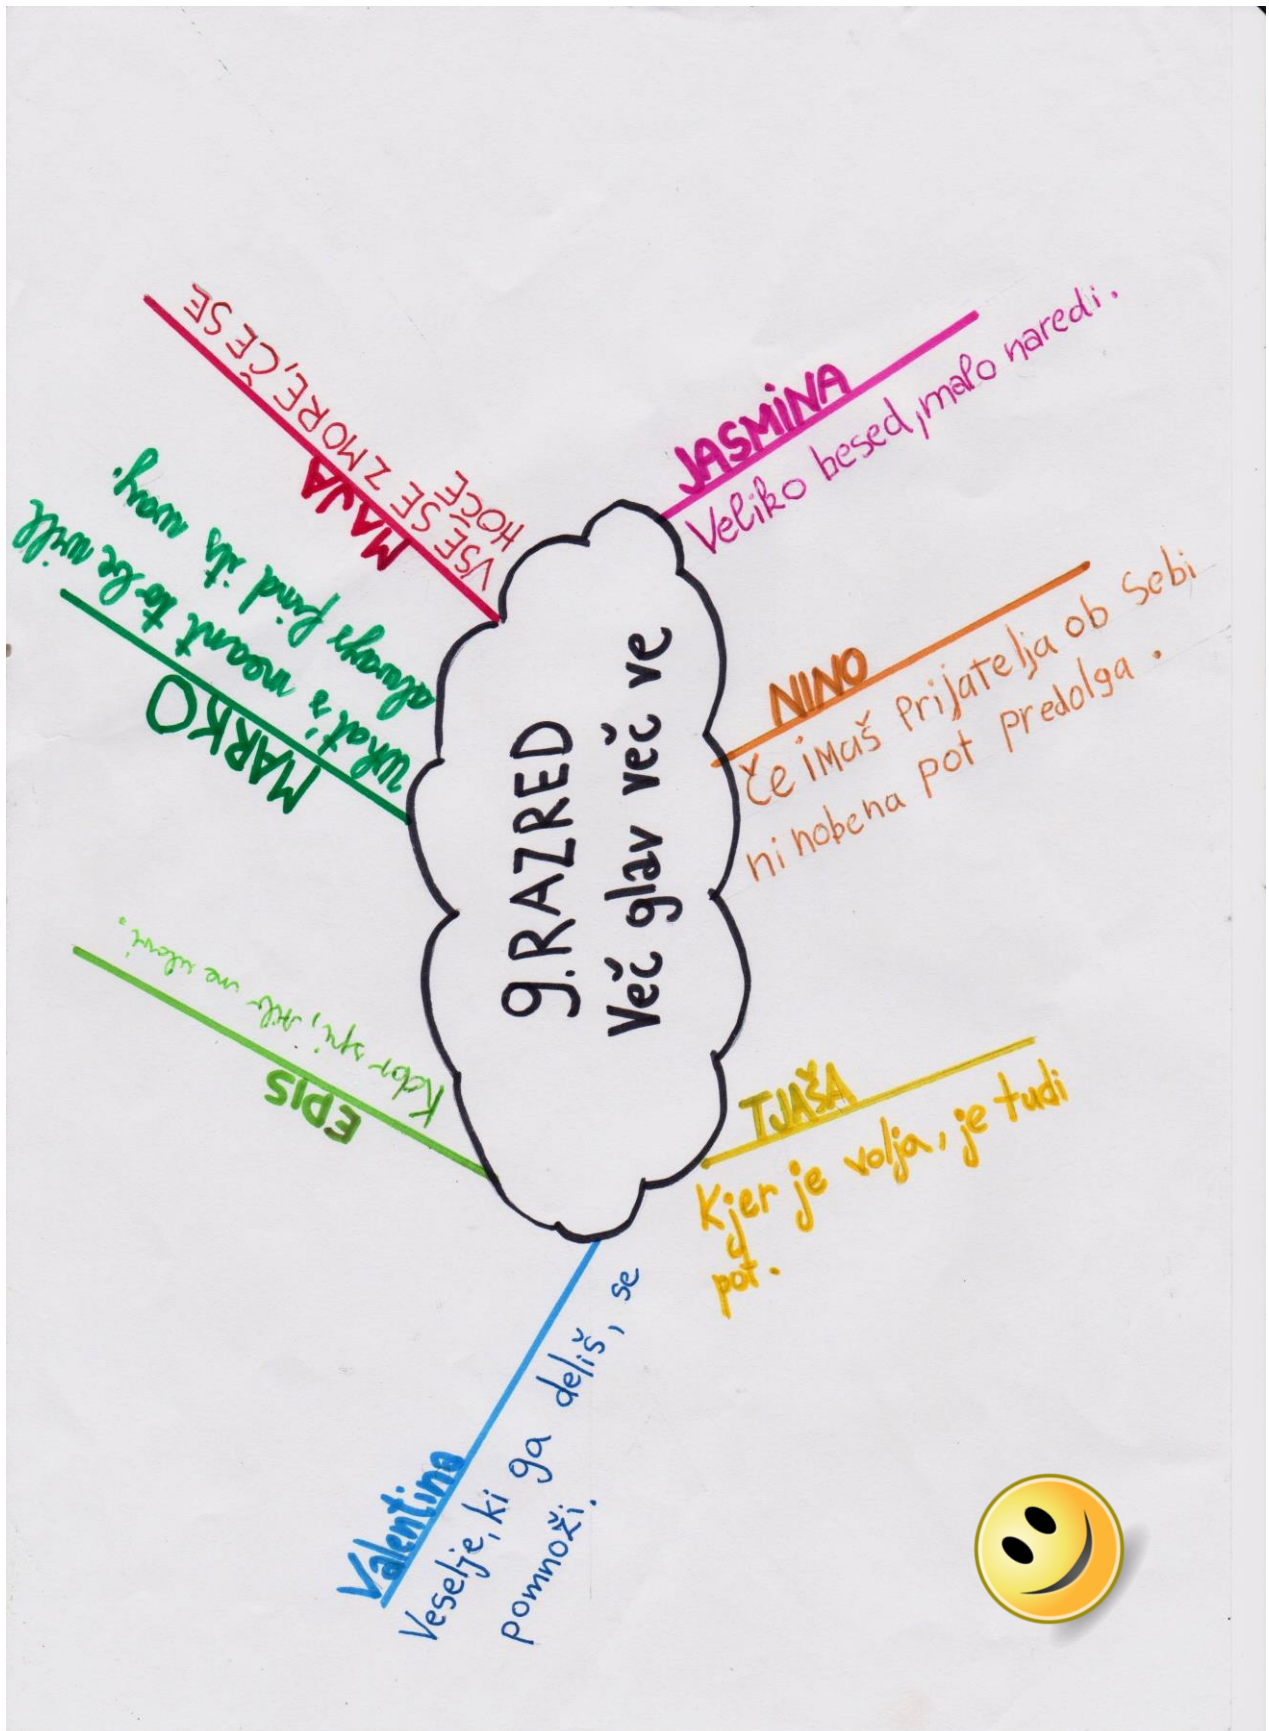 9.RAZRED
Več glav več ve
JASMINA
Veliko besed, malo naredi.
NINO
Če imaš prijatelja ob sebi
ni nobena pot predolga.
TJAŠA
Kjer je volja, je tudi
pot.
Valentina
Veselje, ki ga deliš, se
pomnoži.
EDIS
Kdor spi, rib ne lovi.
MARKO
what's meant to be will
always find its way.
MAJA
VSE SE ZMORE, ČE SE
HOČE